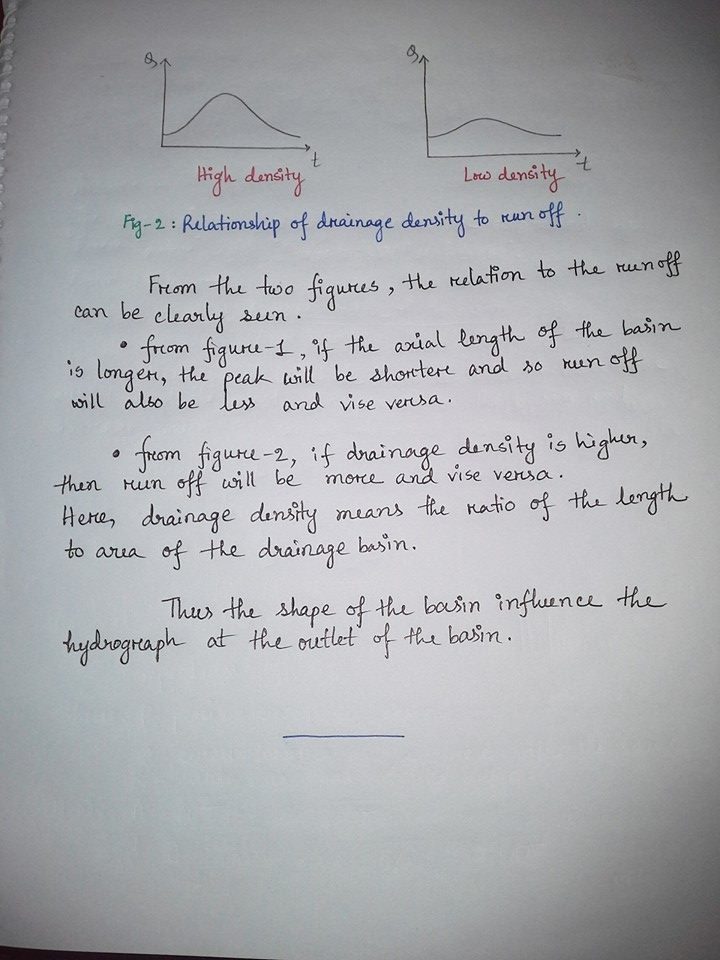 Q
t
High density
Q
t
Low density
Fig-2 : Relationship of drainage density to run off .
From the two figures, the relation to the run off
can be clearly seen .
• from figure-1, if the axial length of the basin
is longer, the peak will be shorter and so run off
will also be less and vise versa.
• from figure-2, if drainage density is higher,
then run off will be more and vise versa.
Here, drainage density means the ratio of the length
to area of the drainage basin.
Thus the shape of the basin influence the
hydrograph at the outlet of the basin.